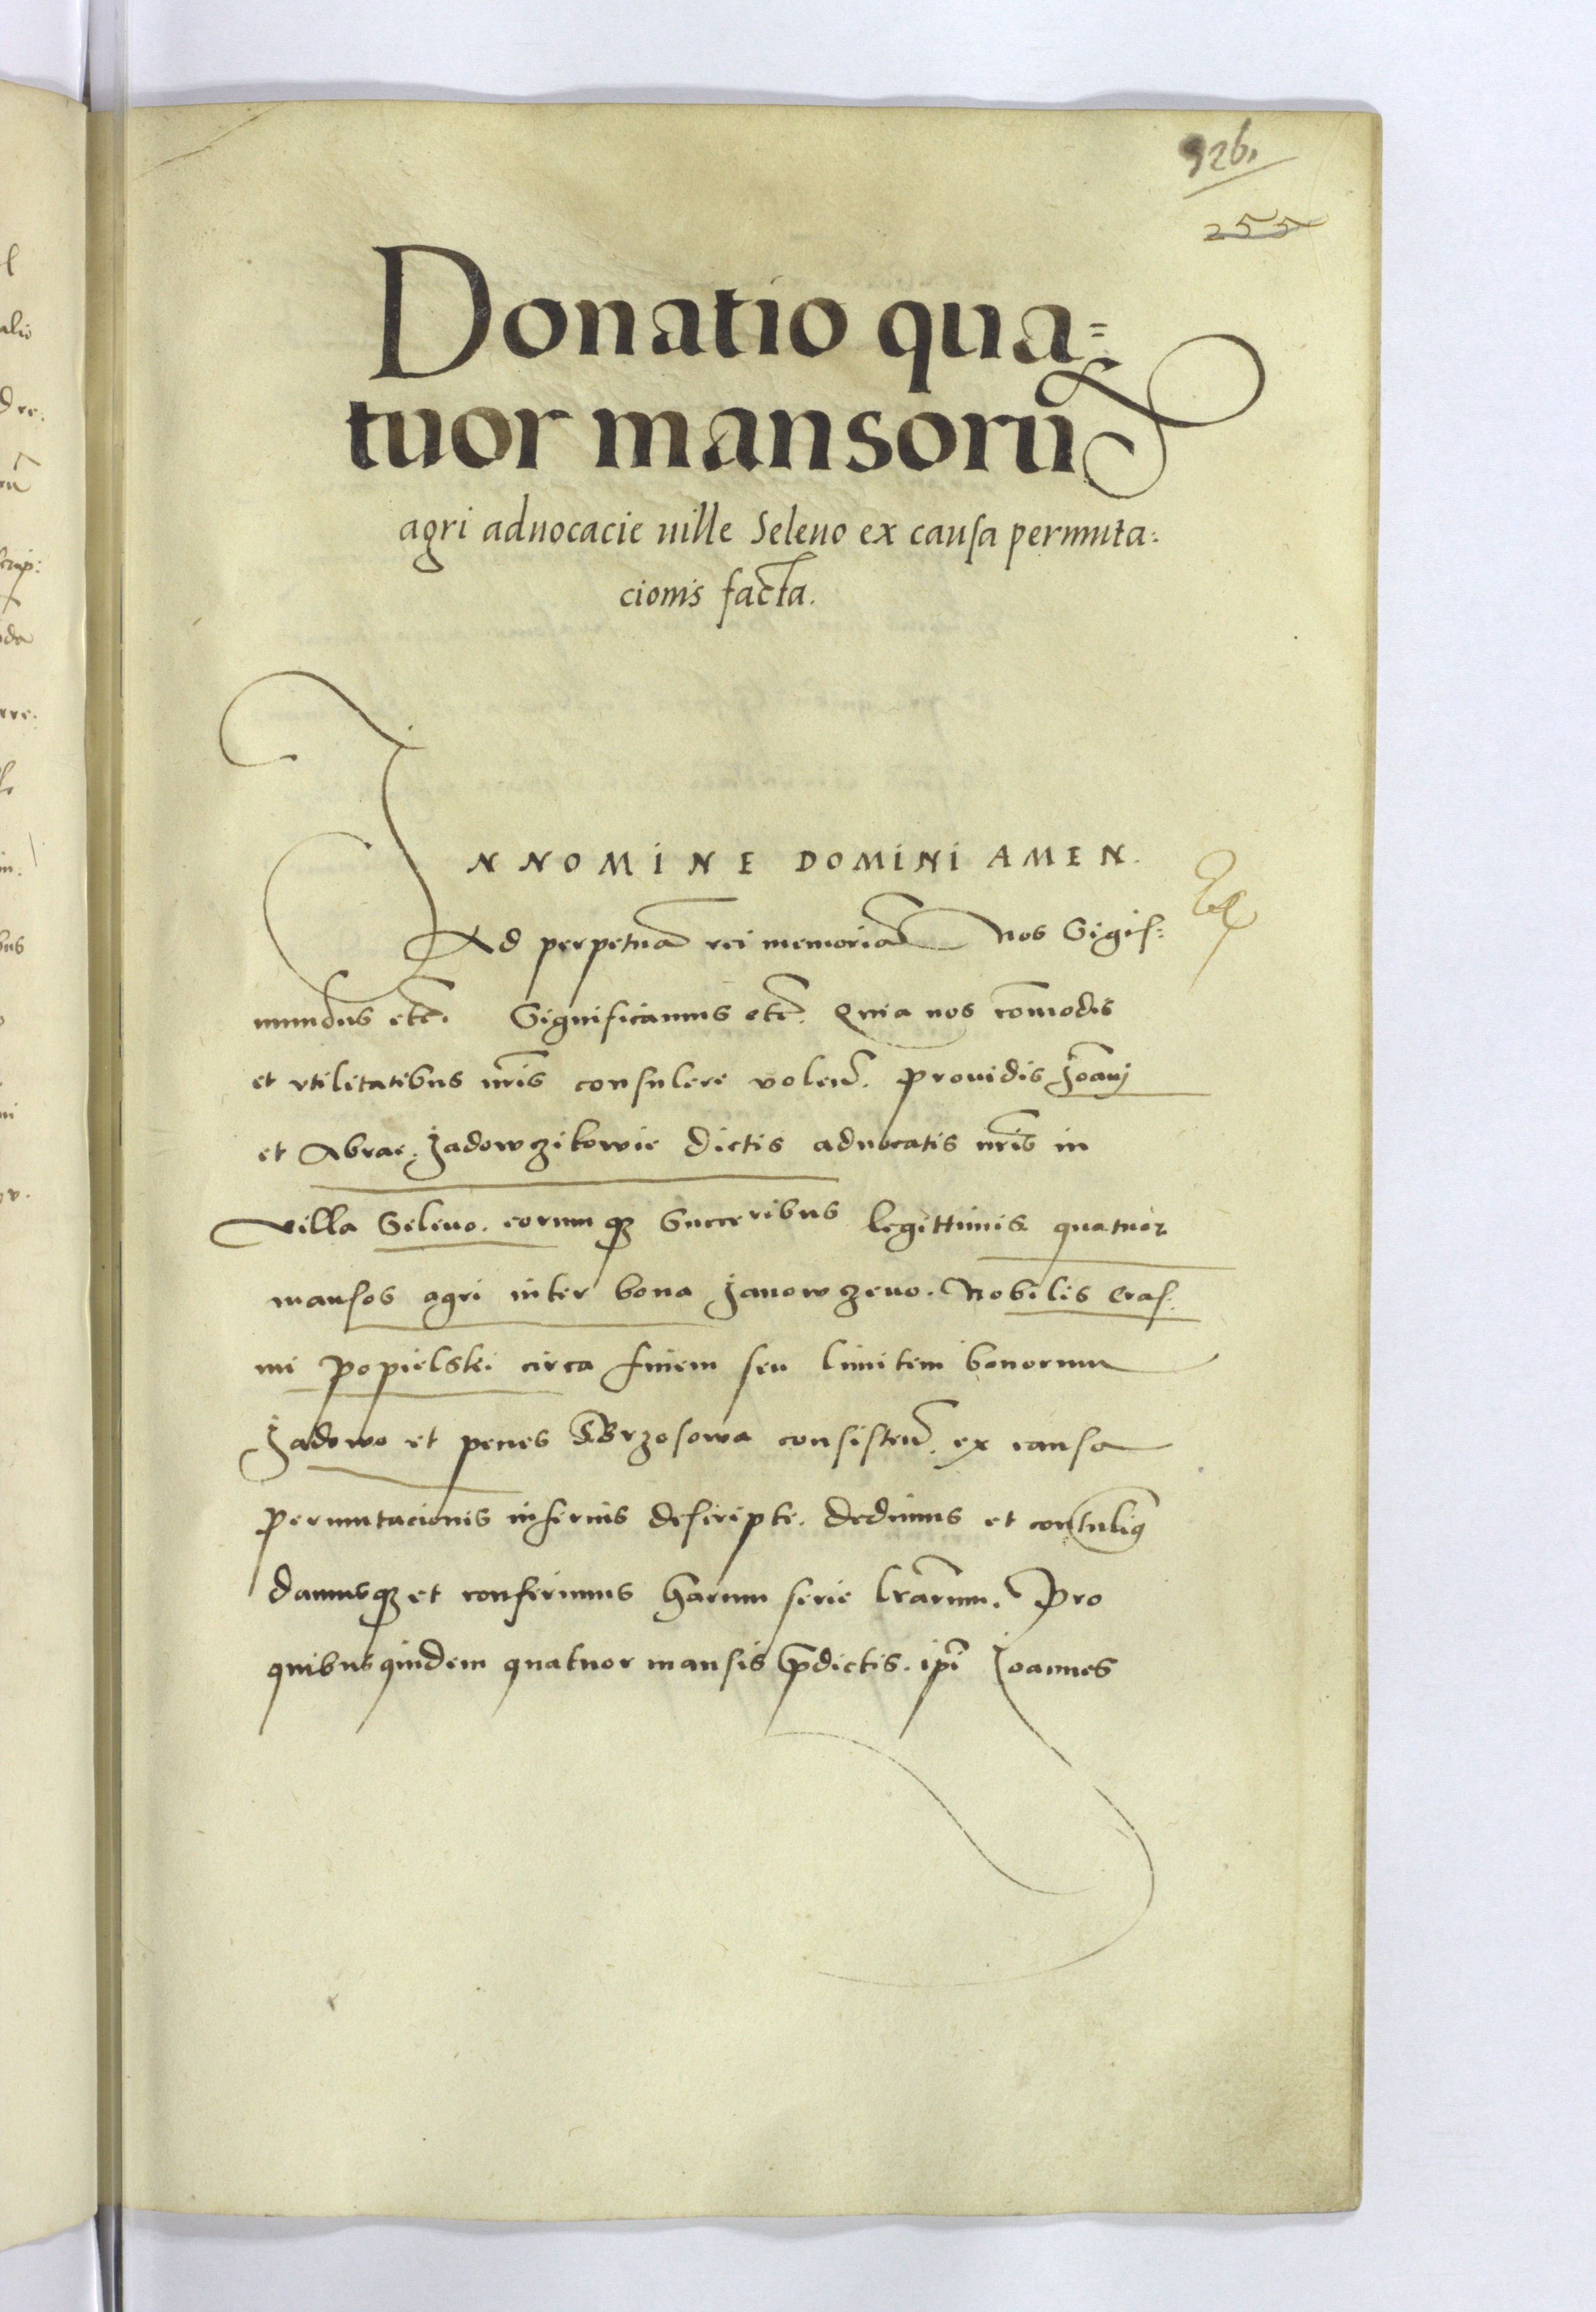 926.
255
Donatio qua=
tuor mansorū
agri aduocacie uille Seleuo ex causa permuta:
cionis facta.
IN NOMINE DOMINI AMEN.
Ad perpetuā rei memoriā Nos Sigis:
mundus etc̄. Significamus etc̄. Quia nos com̄odis
et vtilitatibus nr̄is consulere volen̄. prouidis Joāni
et Abrae. Jadowzikowie dictis aduocatis nr̄is in
villa Seleuo. eorumqz Succeribus legittimis quatuor
mansos agri inter bona Janowzeuo. Nobilis Eras:
mi Popielski circa finem seu limitem bonorum
Jadowo et penes Brzosowa consisten̄. ex causa
permutacionis inferius descripte. dedimus et contulim9
damusqz et conferimus harum serie lr̄arum. Pro
quibus quidem quatuor mansis p̄dictis. ip̄i Joannes